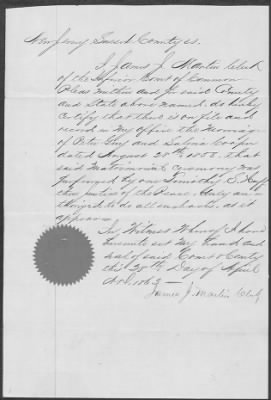 New Jersey Sussex County ss.
I James J. Martin Clerk
of the Inferior Court of Common
Pleas within and for said County
and State above named, do hereby
Certify that there is on file and
record in my Office the Marriage
of Peter and Salina Cooper
dated August 28th that
said Matrimonial Ceremony was
performed by one Timothy E.
then justice of the Peace, duly au-
thorized to do all such acts as it
appears
In Witness Whereof I have
hereunto set my hand and
seal of said Court & County
this 28th Day of April
A.D. 1863
James J. Martin Clerk